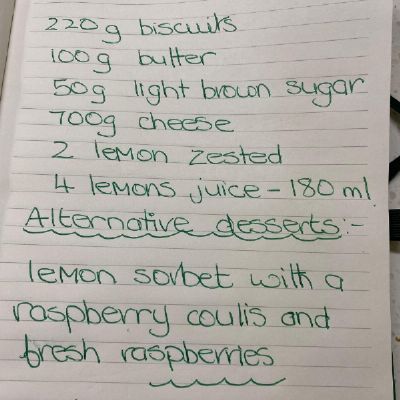 220g biscuits
100g butter
50g light brown sugar
700g cheese
2 lemon zested
4 lemons juice - 180 ml
Alternative desserts:-
lemon sorbet with a
raspberry coulis and
fresh raspberries